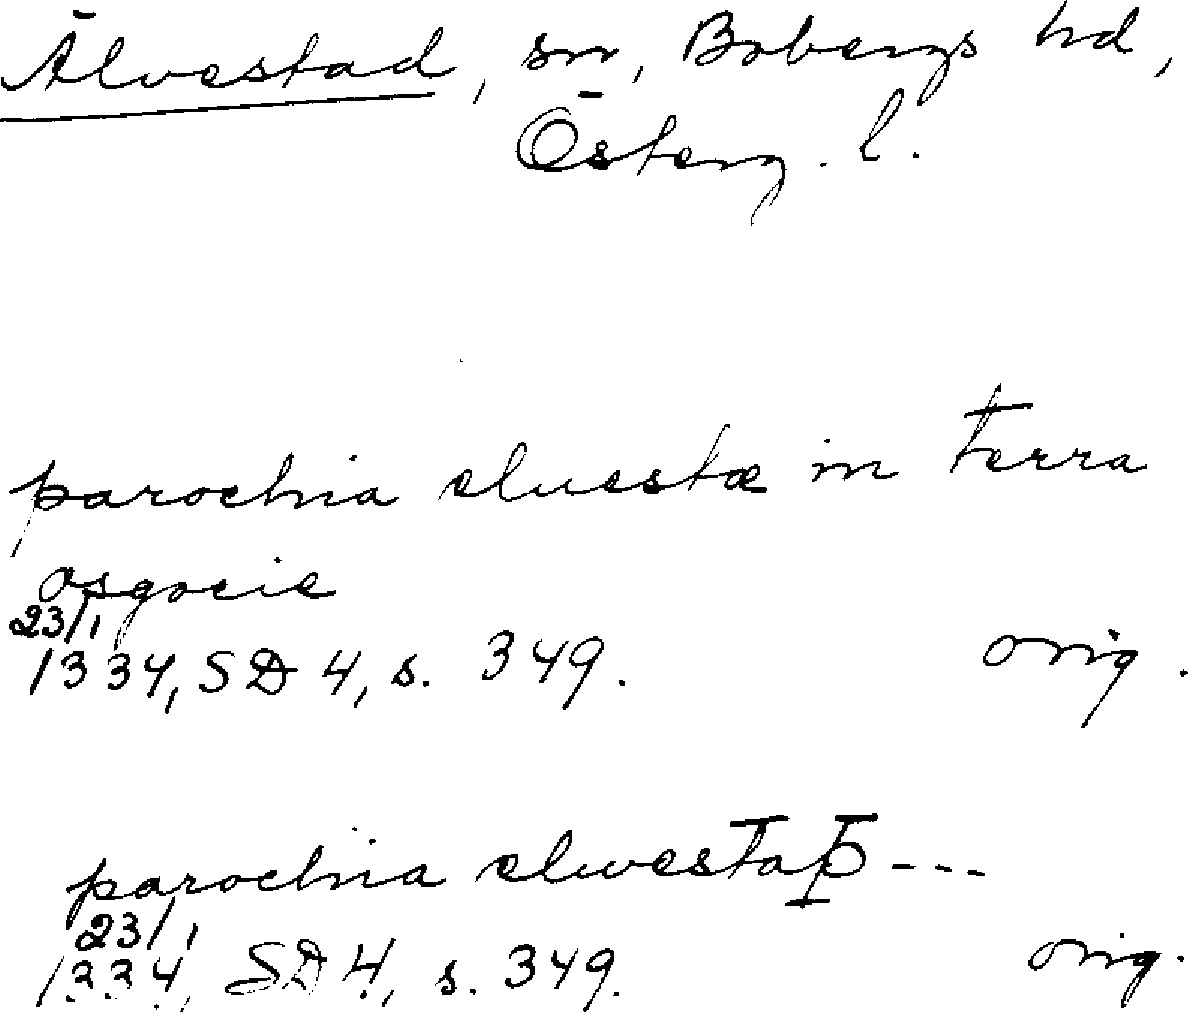 Älvestad, sn, Bobergs hd,
Österg. l.
parochia eluestæ in terra
osgocie
23/1
1334, SD 4, s. 349. orig.
parochia elwestaþ ---
23/1
1334, SD 4, s. 349. orig.